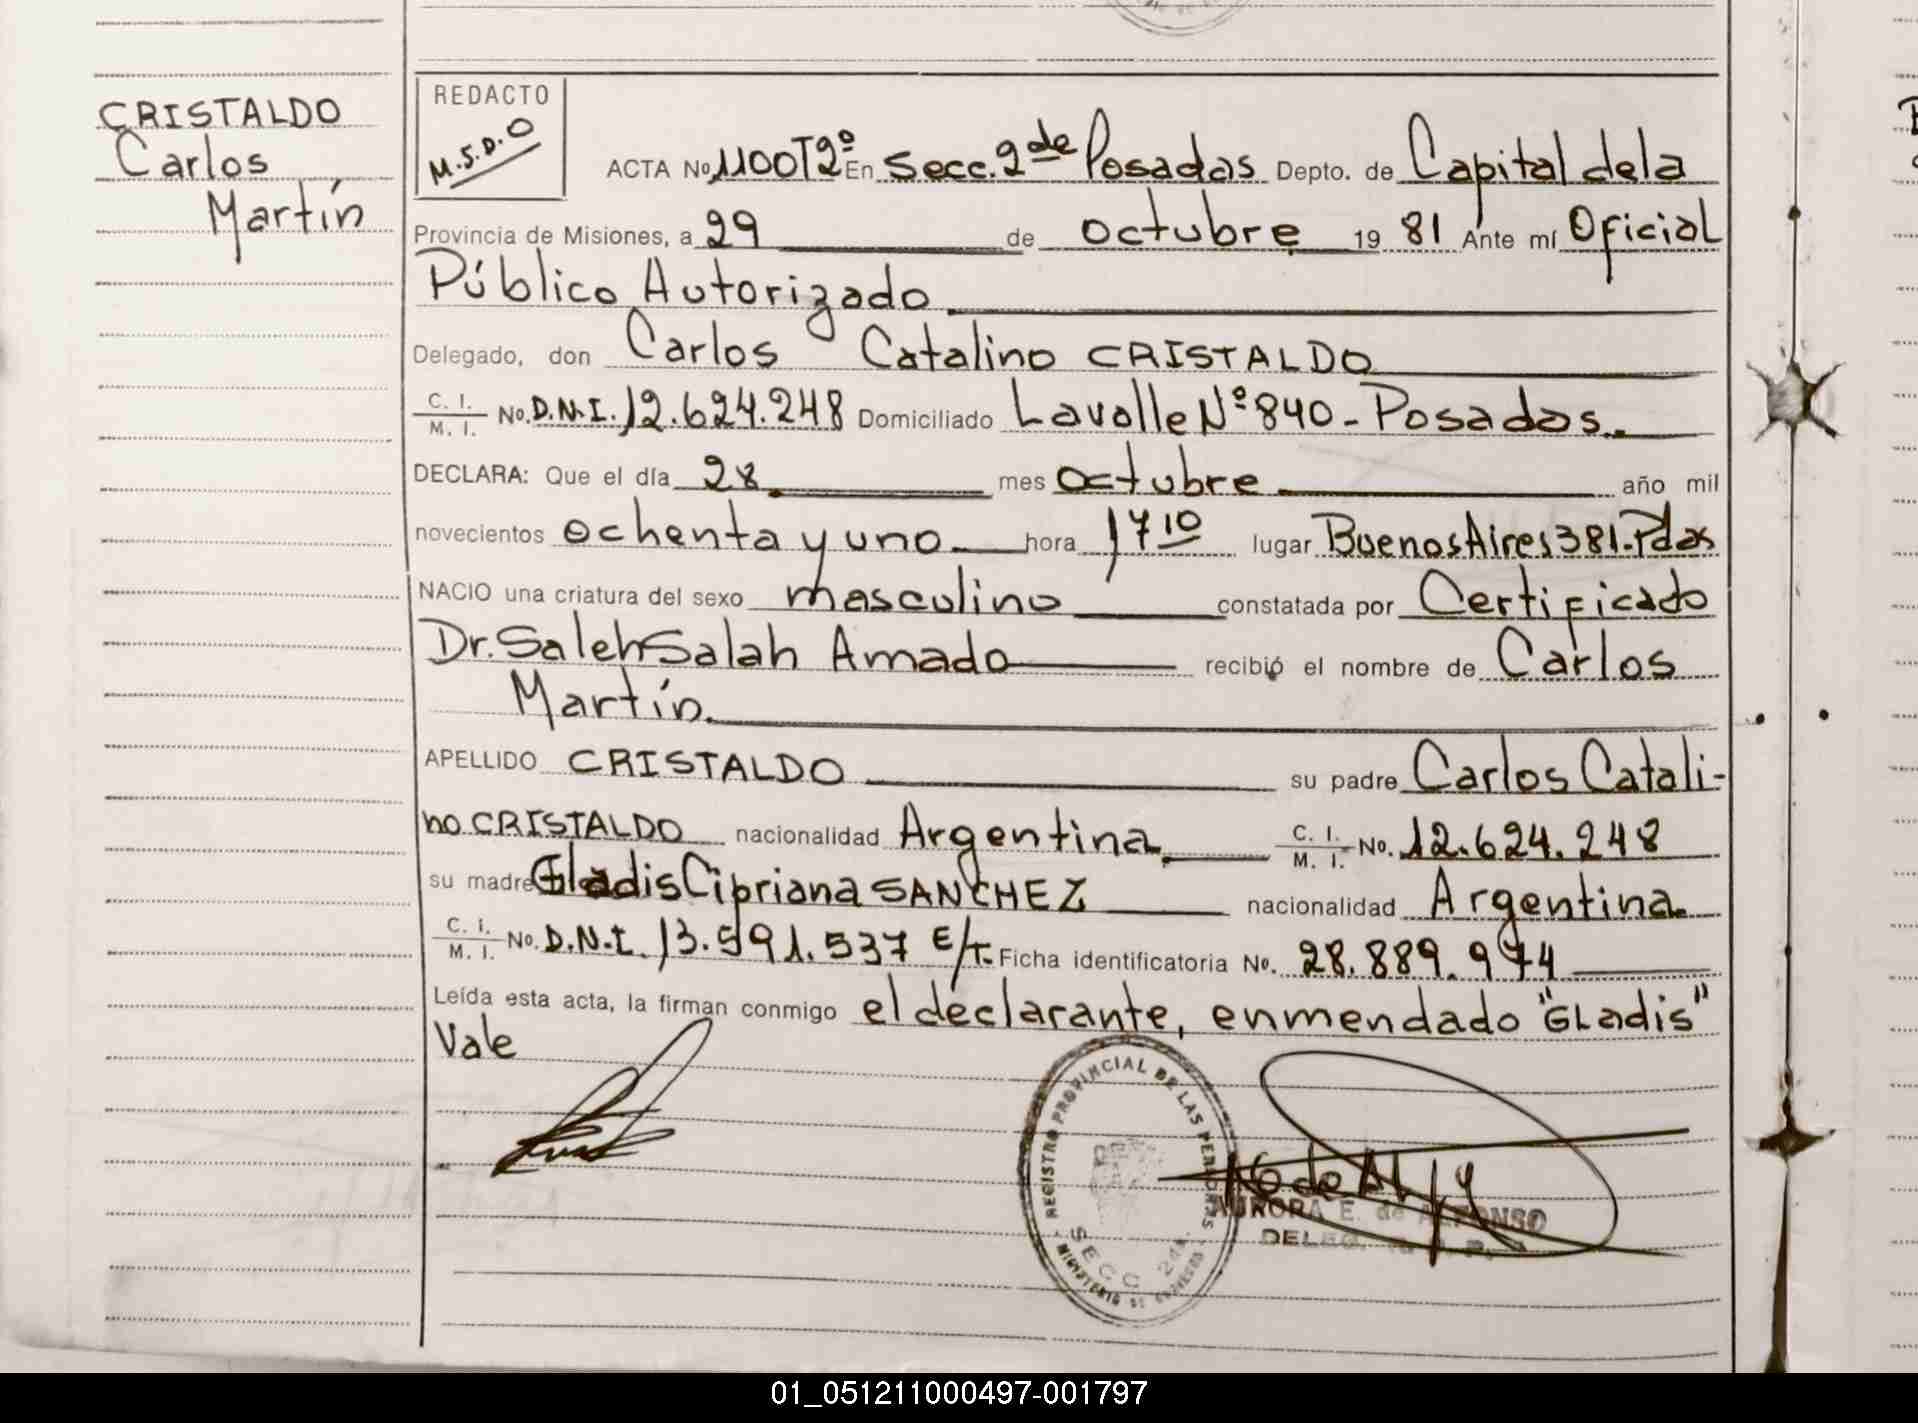 CRISTALDO
Carlos
Martín
REDACTO
M.S.D.O
ACTA No. 1100T2º En Secc. 2da de Posadas Depto. de Capital de la
Provincia de Misiones, a 29 de octubre 19 81 Ante mí Oficial
Público Autorizado
Delegado, don Carlos Catalino CRISTALDO
C. I. / M. I. No. D.N.I. 12.624.248 Domiciliado Lavalle Nº 840 - Posadas.
DECLARA: Que el día 28 mes octubre año mil
novecientos ochenta y uno hora 17 10 lugar Buenos Aires 381-Pdas
NACIO una criatura del sexo masculino constatada por Certificado
Dr. Saleh Salah Amado recibió el nombre de Carlos
Martín.
APELLIDO CRISTALDO su padre Carlos Catali-
no CRISTALDO nacionalidad Argentina C. I. / M. I. No. 12.624.248
su madre Gladis Cipriana SANCHEZ nacionalidad Argentina
C. I. / M. I. No. D.N.I. 13.591.537 E/T. Ficha identificatoria No. 28.889.974
Leída esta acta, la firman conmigo el declarante, enmendado "GLadis"
Vale
REGISTRO PROVINCIAL DE LAS PERSONAS
SECC 2da.
MINISTERIO DE GOBIERNO
AURORA E. de ALFONSO
01_051211000497-001797